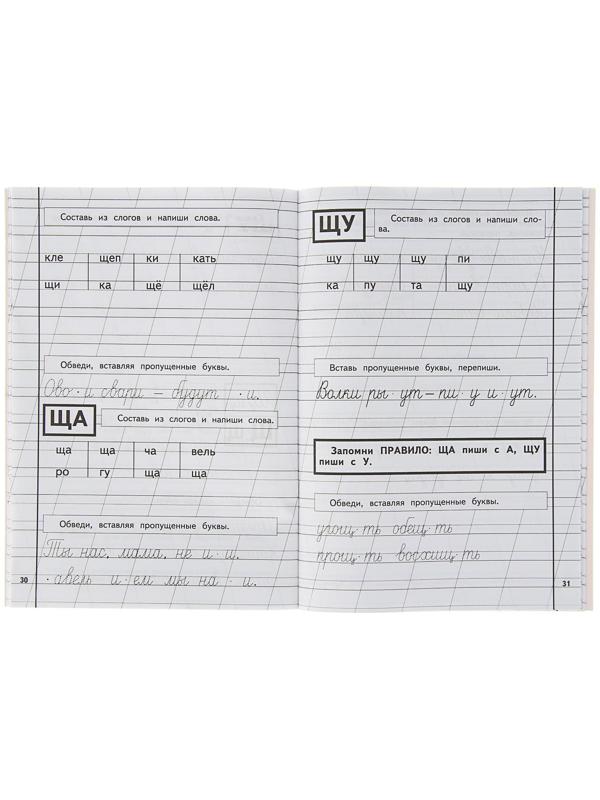 Составь из слогов и напиши слова.
кле щеп ки кать
щи ка щё щёл
Обведи, вставляя пропущенные буквы.
Ово·и свари – будут ·и.
ЩА
Составь из слогов и напиши слова.
ща ща ча вель
ро гу ща ща
Обведи, вставляя пропущенные буквы.
Ты нас, мама, не и·и.
·авель и·ем мы на ·и.
30
ЩУ
Составь из слогов и напиши сло-
ва.
щу щу щу пи
ка пу та щу
Вставь пропущенные буквы, перепиши.
Волки ры·ут – пи·у и·ут.
Запомни ПРАВИЛО: ЩА пиши с А, ЩУ
пиши с У.
Обведи, вставляя пропущенные буквы.
угощ·ть обещ·ть
прощ·ть восхищ·ть
31